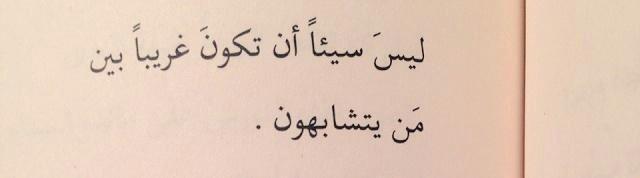 ليسَ سيئاً أن تكونَ غريباً بين
مَن يتشابهون .